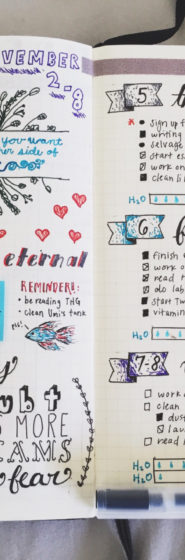 VEMBER
2-8
you want
her side of
eternal
REMINDER!:
• be reading THG
• clean Umi's tank
ps!
y
ubt
S MORE
EAMS
fear
5
sign up f
writing
selvage
start es
work on
clean li
H₂O
6
finish
work o
read
do lab
start Tw
vitamin
H₂O
7-8
work
clean
dus
lau
read
H₂O
H₂O